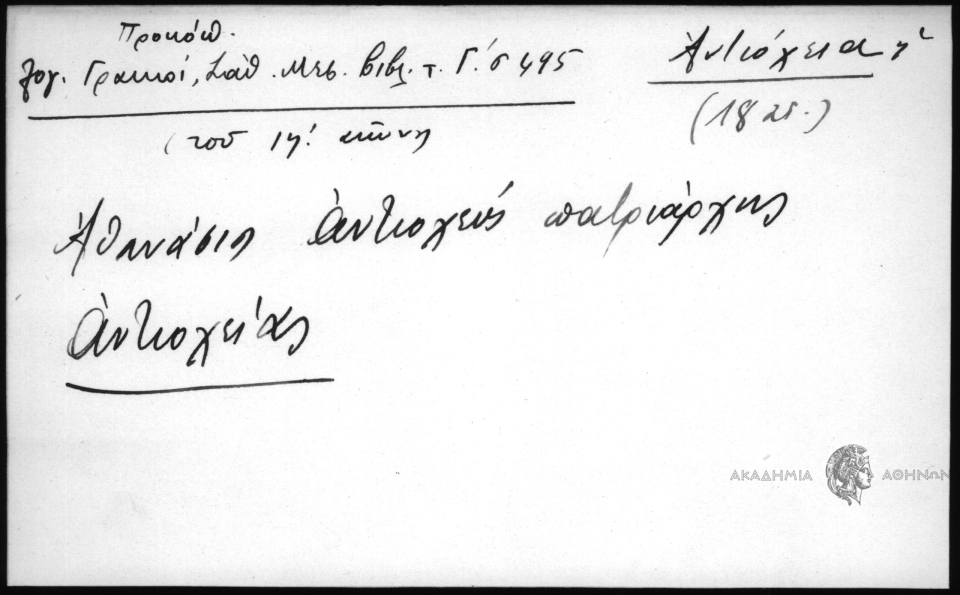 Προκόπ.
λογ. Γραικοί, Σάθ. Μεσ. Βιβλ. τ. Γ΄. σ 495
Ἀντιόχεια, ἡ
(του ιη΄. αἰῶνος
(18 αι.)
Ἀθανάσιος Ἀντιοχεύς πατριάρχης
Ἀντιοχείας
ΑΚΑΔΗΜΙΑ ΑΘΗΝΩΝ